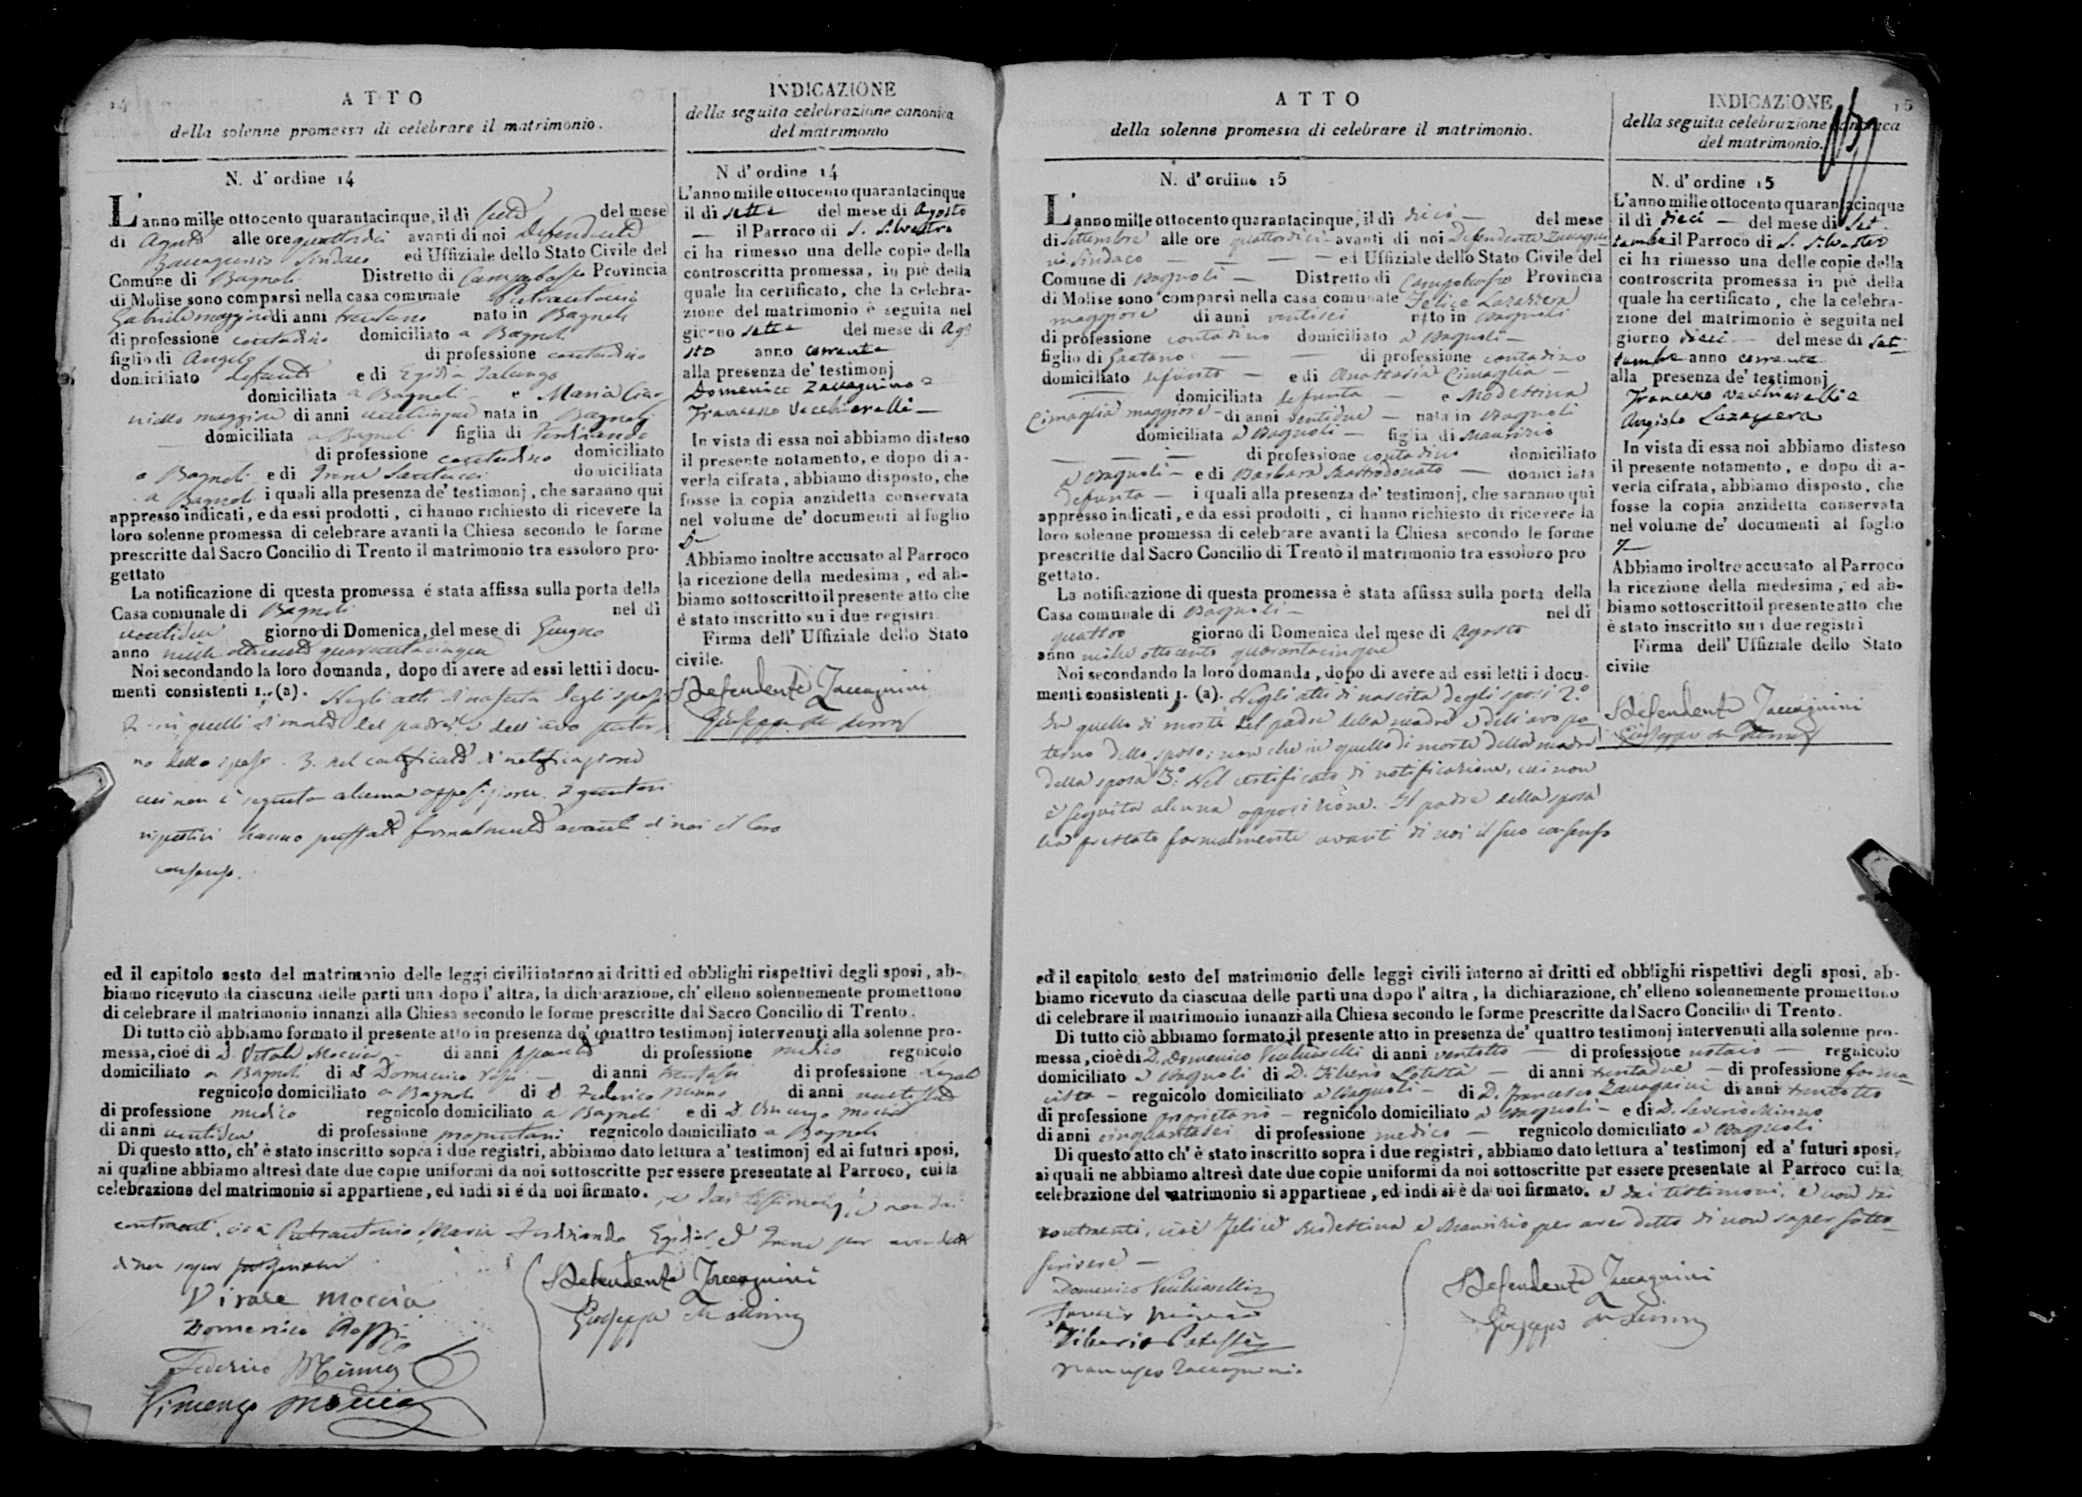 14
ATTO
della solenne promessa di celebrare il matrimonio.
N. d' ordine 14
L'anno mille ottocento quarantacinque, il dì sette del mese
di Agosto alle ore quattordici avanti di noi Defendente
Zaccagnini Sindaco ed Uffiziale dello Stato Civile del
Comune di Bagnoli Distretto di Campobasso Provincia
di Molise sono comparsi nella casa comunale Pietrantonio
Gabriele maggiore di anni trentuno nato in Bagnoli
di professione contadino domiciliato a Bagnoli
figlio di Angelo di professione contadino
domiciliato defunto e di Egidia
domiciliata a Bagnoli e Maria
maggiore di anni venticinque nata in Bagnoli
domiciliata a Bagnoli figlia di Ferdinando
di professione contadino domiciliato
a Bagnoli e di Irene Santucci domiciliata
a Bagnoli i quali alla presenza de' testimonj, che saranno qui
appresso indicati, e da essi prodotti, ci hanno richiesto di ricevere la
loro solenne promessa di celebrare avanti la Chiesa secondo le forme
prescritte dal Sacro Concilio di Trento il matrimonio tra essoloro pro-
gettato
La notificazione di questa promessa é stata affissa sulla porta della
Casa comunale di Bagnoli nel dì
ventidue giorno di Domenica, del mese di Giugno
anno mille ottocento quarantacinque
Noi secondando la loro domanda, dopo di avere ad essi letti i docu-
menti consistenti 1.. (a). Negli atti di nascita degli sposi
2. in quelli di morte del padre e dell'avo pater
no dello sposo. 3. nel certificato di notificazione
cui non è seguita alcuna opposizione. I genitori
rispettivi hanno prestato formalmente avanti di noi il loro
consenso.
ed il capitolo sesto del matrimonio delle leggi civili intorno ai dritti ed obblighi rispettivi degli sposi, ab-
biamo ricevuto da ciascuna delle parti una dopo l' altra, la dichiarazione, ch' elleno solennemente promettono
di celebrare il matrimonio innanzi alla Chiesa secondo le forme prescritte dal Sacro Concilio di Trento.
Di tutto ciò abbiamo formato il presente atto in presenza de' quattro testimonj intervenuti alla solenne pro-
messa, cioé di D. Vitale Moccia di anni di professione medico regnicolo
domiciliato a Bagnoli di D. Domenico Rossi di anni trentasei di professione Legale
regnicolo domiciliato a Bagnoli di D. Federico Minno di anni
di professione medico regnicolo domiciliato a Bagnoli e di D. Vincenzo Moccia
di anni ventidue di professione proprietario regnicolo domiciliato a Bagnoli
Di questo atto, ch' è stato inscritto sopra i due registri, abbiamo dato lettura a' testimonj ed ai futuri sposi,
ai quali ne abbiamo altresì date due copie uniformi da noi sottoscritte per essere presentate al Parroco, cui la
celebrazione del matrimonio si appartiene, ed indi si é da noi firmato. e dai testimonj, e non dai
contraenti, cioè Pietrantonio, Maria Ferdinando Egidia ed Irene per aver detto
di non saper
Vitale Moccia
Domenico Rossi
Federico Minno
Vincenzo Moccia
Defendente Zaccagnini
Giuseppe
INDICAZIONE
della seguita celebrazione canonica
del matrimonio
N d' ordine 14
L'anno mille ottocento quarantacinque
il dì sette del mese di Agosto
— il Parroco di S. Silvestro
ci ha rimesso una delle copie della
controscritta promessa, in piè della
quale ha certificato, che la celebra-
zione del matrimonio è seguita nel
giorno sette del mese di Ago
sto anno corrente
alla presenza de' testimonj
Domenico Zaccagnino e
Francesco Vecchiarelli —
In vista di essa noi abbiamo disteso
il presente notamento, e dopo di a-
verla cifrata, abbiamo disposto, che
fosse la copia anzidetta conservata
nel volume de' documenti al foglio
Abbiamo inoltre accusato al Parroco
la ricezione della medesima, ed ab-
biamo sottoscritto il presente atto che
é stato inscritto su i due registri.
Firma dell' Uffiziale dello Stato
civile.
Defendente Zaccagnini
Giuseppe
ATTO
della solenne promessa di celebrare il matrimonio.
N. d' ordine 15
L'anno mille ottocento quarantacinque, il dì dieci — del mese
di Settembre alle ore quattordici avanti di noi Defendente Zaccagni
ni Sindaco — — — ed Uffiziale dello Stato Civile del
Comune di Bagnoli — Distretto di Campobasso Provincia
di Molise sono comparsi nella casa comunale Felice Lazazzera
maggiore di anni ventisei nato in Bagnoli
di professione contadino domiciliato a Bagnoli —
figlio di Gaetano — — di professione contadino
domiciliato defunto — e di Anastasia Cimaglia —
— domiciliata defunta — e Modestina
Cimaglia maggiore — di anni ventidue — nata in Bagnoli
domiciliata a Bagnoli — figlia di Maurizio
— — — di professione contadino domiciliato
a Bagnoli — e di Barbara Mastrodonato — domiciliata
defunta — i quali alla presenza de' testimonj, che saranno qui
appresso indicati, e da essi prodotti, ci hanno richiesto di ricevere la
loro solenne promessa di celebrare avanti la Chiesa secondo le forme
prescritte dal Sacro Concilio di Trento il matrimonio tra essoloro pro
gettato.
La notificazione di questa promessa è stata affissa sulla porta della
Casa comunale di Bagnoli — nel dì
quattro giorno di Domenica del mese di Agosto
anno mille ottocento quarantacinque
Noi secondando la loro domanda, dopo di avere ad essi letti i docu-
menti consistenti 1. (a). Negli atti di nascita degli sposi 2.°
In quello di morte del padre della madre e dell'avo pa
terno dello sposo; non che in quello di morte della madre
della sposa 3.° Nel certificato di notificazione, cui non
è seguita alcuna opposizione. Il padre della sposa
ha prestato formalmente avanti di noi il suo consenso
ed il capitolo sesto del matrimonio delle leggi civili intorno ai dritti ed obblighi rispettivi degli sposi, ab-
biamo ricevuto da ciascuna delle parti una dopo l' altra, la dichiarazione, ch' elleno solennemente promettono
di celebrare il matrimonio innanzi alla Chiesa secondo le forme prescritte dal Sacro Concilio di Trento.
Di tutto ciò abbiamo formato il presente atto in presenza de' quattro testimonj intervenuti alla solenne pro-
messa, cioè di D. Domenico Vecchiarelli di anni ventotto — di professione notaio — regnicolo
domiciliato a Bagnoli di D. Tiberio — di anni trentadue — di professione farma
cista — regnicolo domiciliato a Bagnoli — di D. Francesco Zaccagnini di anni trentotto
di professione proprietario — regnicolo domiciliato a Bagnoli — e di D. Saverio Minno
di anni cinquantasei di professione medico — regnicolo domiciliato a Bagnoli
Di questo atto ch' è stato inscritto sopra i due registri, abbiamo dato lettura a' testimonj ed a' futuri sposi,
ai quali ne abbiamo altresì date due copie uniformi da noi sottoscritte per essere presentate al Parroco cui la
celebrazione del matrimonio si appartiene, ed indi si è da noi firmato. e dai testimoni, e non dai
contraenti, cioè Felice Modestina e Maurizio per aver detto di non saper sotto—
scrivere —
Domenico Vecchiarelli
Saverio Minno
Tiberio
Francesco Zaccagnini
Defendente Zaccagnini
Giuseppe
15
INDICAZIONE
della seguita celebrazione canonica
del matrimonio.
N. d' ordine 15
L'anno mille ottocento quarantacinque
il dì dieci — del mese di Set
tembre il Parroco di S. Silvestro
ci ha rimesso una delle copie della
controscrita promessa in piè della
quale ha certificato, che la celebra-
zione del matrimonio è seguita nel
giorno dieci — del mese di Set
tembre anno corrente
alla presenza de' testimonj
Francesco Vecchiarelli e
Angiolo Lazazzera
In vista di essa noi abbiamo disteso
il presente notamento, e dopo di a-
verla cifrata, abbiamo disposto, che
fosse la copia anzidetta conservata
nel volume de' documenti al foglio
7—
Abbiamo inoltre accusato al Parroco
la ricezione della medesima, ed ab-
biamo sottoscritto il presente atto che
è stato inscritto su i due registri
Firma dell' Uffiziale dello Stato
civile
Defendente Zaccagnini
Giuseppe